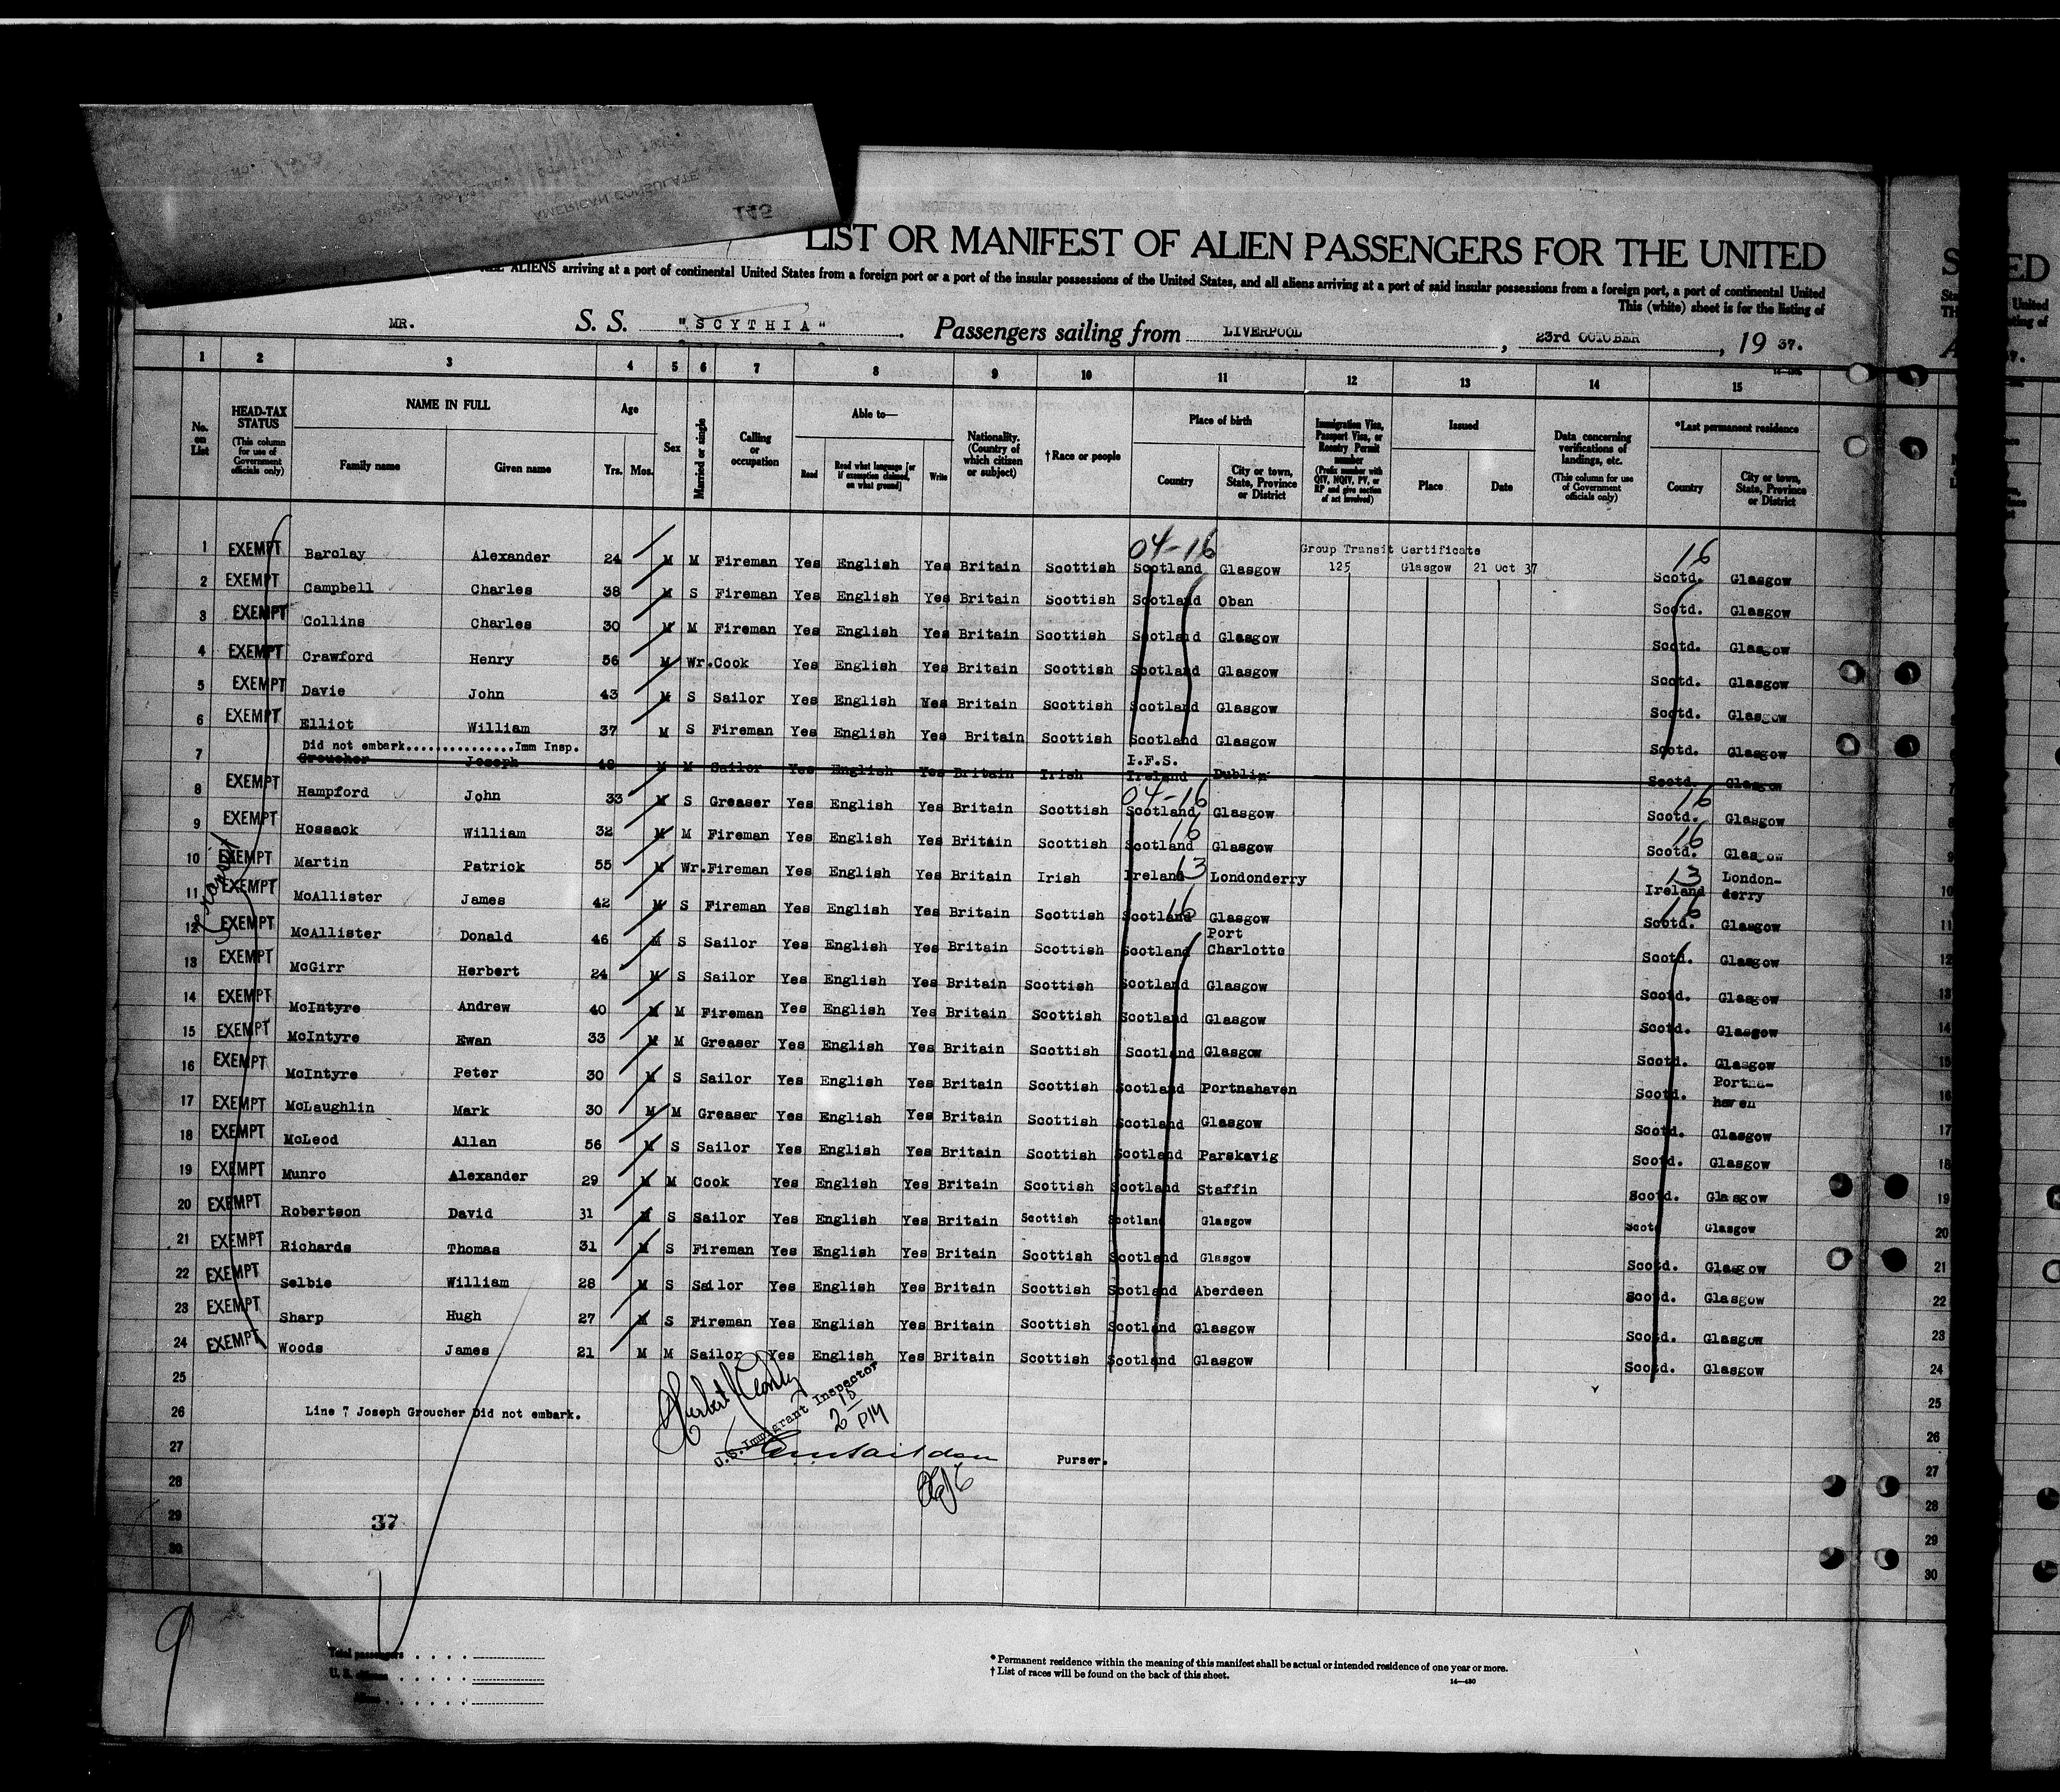 145
AMERICAN CONSULATE
LIST OR MANIFEST OF ALIEN PASSENGERS FOR THE UNITED
ALIENS arriving at a port of continental United States from a foreign port or a port of the insular possessions of the United States, and all aliens arriving at a port of said insular possessions from a foreign port, a port of continental United
This (white) sheet is for the listing of
MR. S. S. "SCYTHIA" Passengers sailing from LIVERPOOL, 23rd OCTOBER, 19 37.
1 2 3 4 5 6 7 8 9 10 11 12 13 14 15
No. on List
HEAD-TAX STATUS (This column for use of Government officials only)
NAME IN FULL
Family name Given name
Age Yrs. Mos.
Sex
Married or single
Calling or occupation
Able to—
Read Read what language [or if exemption claimed, on what ground] Write
Nationality. (Country of which citizen or subject)
†Race or people
Place of birth
Country City or town, State, Province or District
Immigration Visa, Passport Visa, or Reentry Permit number (Prefix number with QIV, NQIV, PV, or RP and give section of act involved)
Issued
Place Date
Data concerning verifications of landings, etc. (This column for use of Government officials only)
*Last permanent residence
Country City or town, State, Province or District
04-16 Group Transit Certificate 16
1 EXEMPT Barclay Alexander 24 M M Fireman Yes English Yes Britain Scottish Scotland Glasgow 125 Glasgow 21 Oct 37 Scotd. Glasgow
2 EXEMPT Campbell Charles 38 M S Fireman Yes English Yes Britain Scottish Scotland Oban Scotd. Glasgow
3 EXEMPT Collins Charles 30 M M Fireman Yes English Yes Britain Scottish Scotland Glasgow Scotd. Glasgow
4 EXEMPT Crawford Henry 56 M Wr. Cook Yes English Yes Britain Scottish Scotland Glasgow Scotd. Glasgow
5 EXEMPT Davie John 43 M S Sailor Yes English Yes Britain Scottish Scotland Glasgow Scotd. Glasgow
6 EXEMPT Elliot William 37 M S Fireman Yes English Yes Britain Scottish Scotland Glasgow Scotd. Glasgow
Did not embark...............Imm Insp. I.F.S.
7 Groucher Joseph 49 M M Sailor Yes English Yes Britain Irish Ireland Dublin Scotd. Glasgow
04-16 16
8 EXEMPT Hampford John 33 M S Greaser Yes English Yes Britain Scottish Scotland Glasgow Scotd. Glasgow
9 EXEMPT Hossack William 32 M M Fireman Yes English Yes Britain Scottish Scotland 16 Glasgow Scotd. 16 Glasgow
10 EXEMPT Martin Patrick 55 M Wr. Fireman Yes English Yes Britain Irish Ireland 13 Londonderry Ireland 13 London-derry
11 EXEMPT McAllister James 42 M S Fireman Yes English Yes Britain Scottish Scotland 16 Glasgow Scotd. 16 Glasgow
12 EXEMPT McAllister Donald 46 M S Sailor Yes English Yes Britain Scottish Scotland Port Charlotte Scotd. Glasgow
13 EXEMPT McGirr Herbert 24 M S Sailor Yes English Yes Britain Scottish Scotland Glasgow Scotd. Glasgow
14 EXEMPT McIntyre Andrew 40 M M Fireman Yes English Yes Britain Scottish Scotland Glasgow Scotd. Glasgow
15 EXEMPT McIntyre Ewan 33 M M Greaser Yes English Yes Britain Scottish Scotland Glasgow Scotd. Glasgow
16 EXEMPT McIntyre Peter 30 M S Sailor Yes English Yes Britain Scottish Scotland Portnahaven Scotd. Portna-haven
17 EXEMPT McLaughlin Mark 30 M M Greaser Yes English Yes Britain Scottish Scotland Glasgow Scotd. Glasgow
18 EXEMPT McLeod Allan 56 M S Sailor Yes English Yes Britain Scottish Scotland Parskavig Scotd. Glasgow
19 EXEMPT Munro Alexander 29 M M Cook Yes English Yes Britain Scottish Scotland Staffin Scotd. Glasgow
20 EXEMPT Robertson David 31 M S Sailor Yes English Yes Britain Scottish Scotland Glasgow Scotd Glasgow
21 EXEMPT Richards Thomas 31 M S Fireman Yes English Yes Britain Scottish Scotland Glasgow Scotd. Glasgow
22 EXEMPT Selbie William 28 M S Sailor Yes English Yes Britain Scottish Scotland Aberdeen Scotd. Glasgow
23 EXEMPT Sharp Hugh 27 M S Fireman Yes English Yes Britain Scottish Scotland Glasgow Scotd. Glasgow
24 EXEMPT Woods James 21 M M Sailor Yes English Yes Britain Scottish Scotland Glasgow Scotd. Glasgow
25
26 Line 7 Joseph Groucher Did not embark.
U.S. Immigrant Inspector
2 15 PM
27 Purser.
28
29 37
30
Total passengers
U. S. citizens
Aliens
* Permanent residence within the meaning of this manifest shall be actual or intended residence of one year or more.
† List of races will be found on the back of this sheet.
14—430